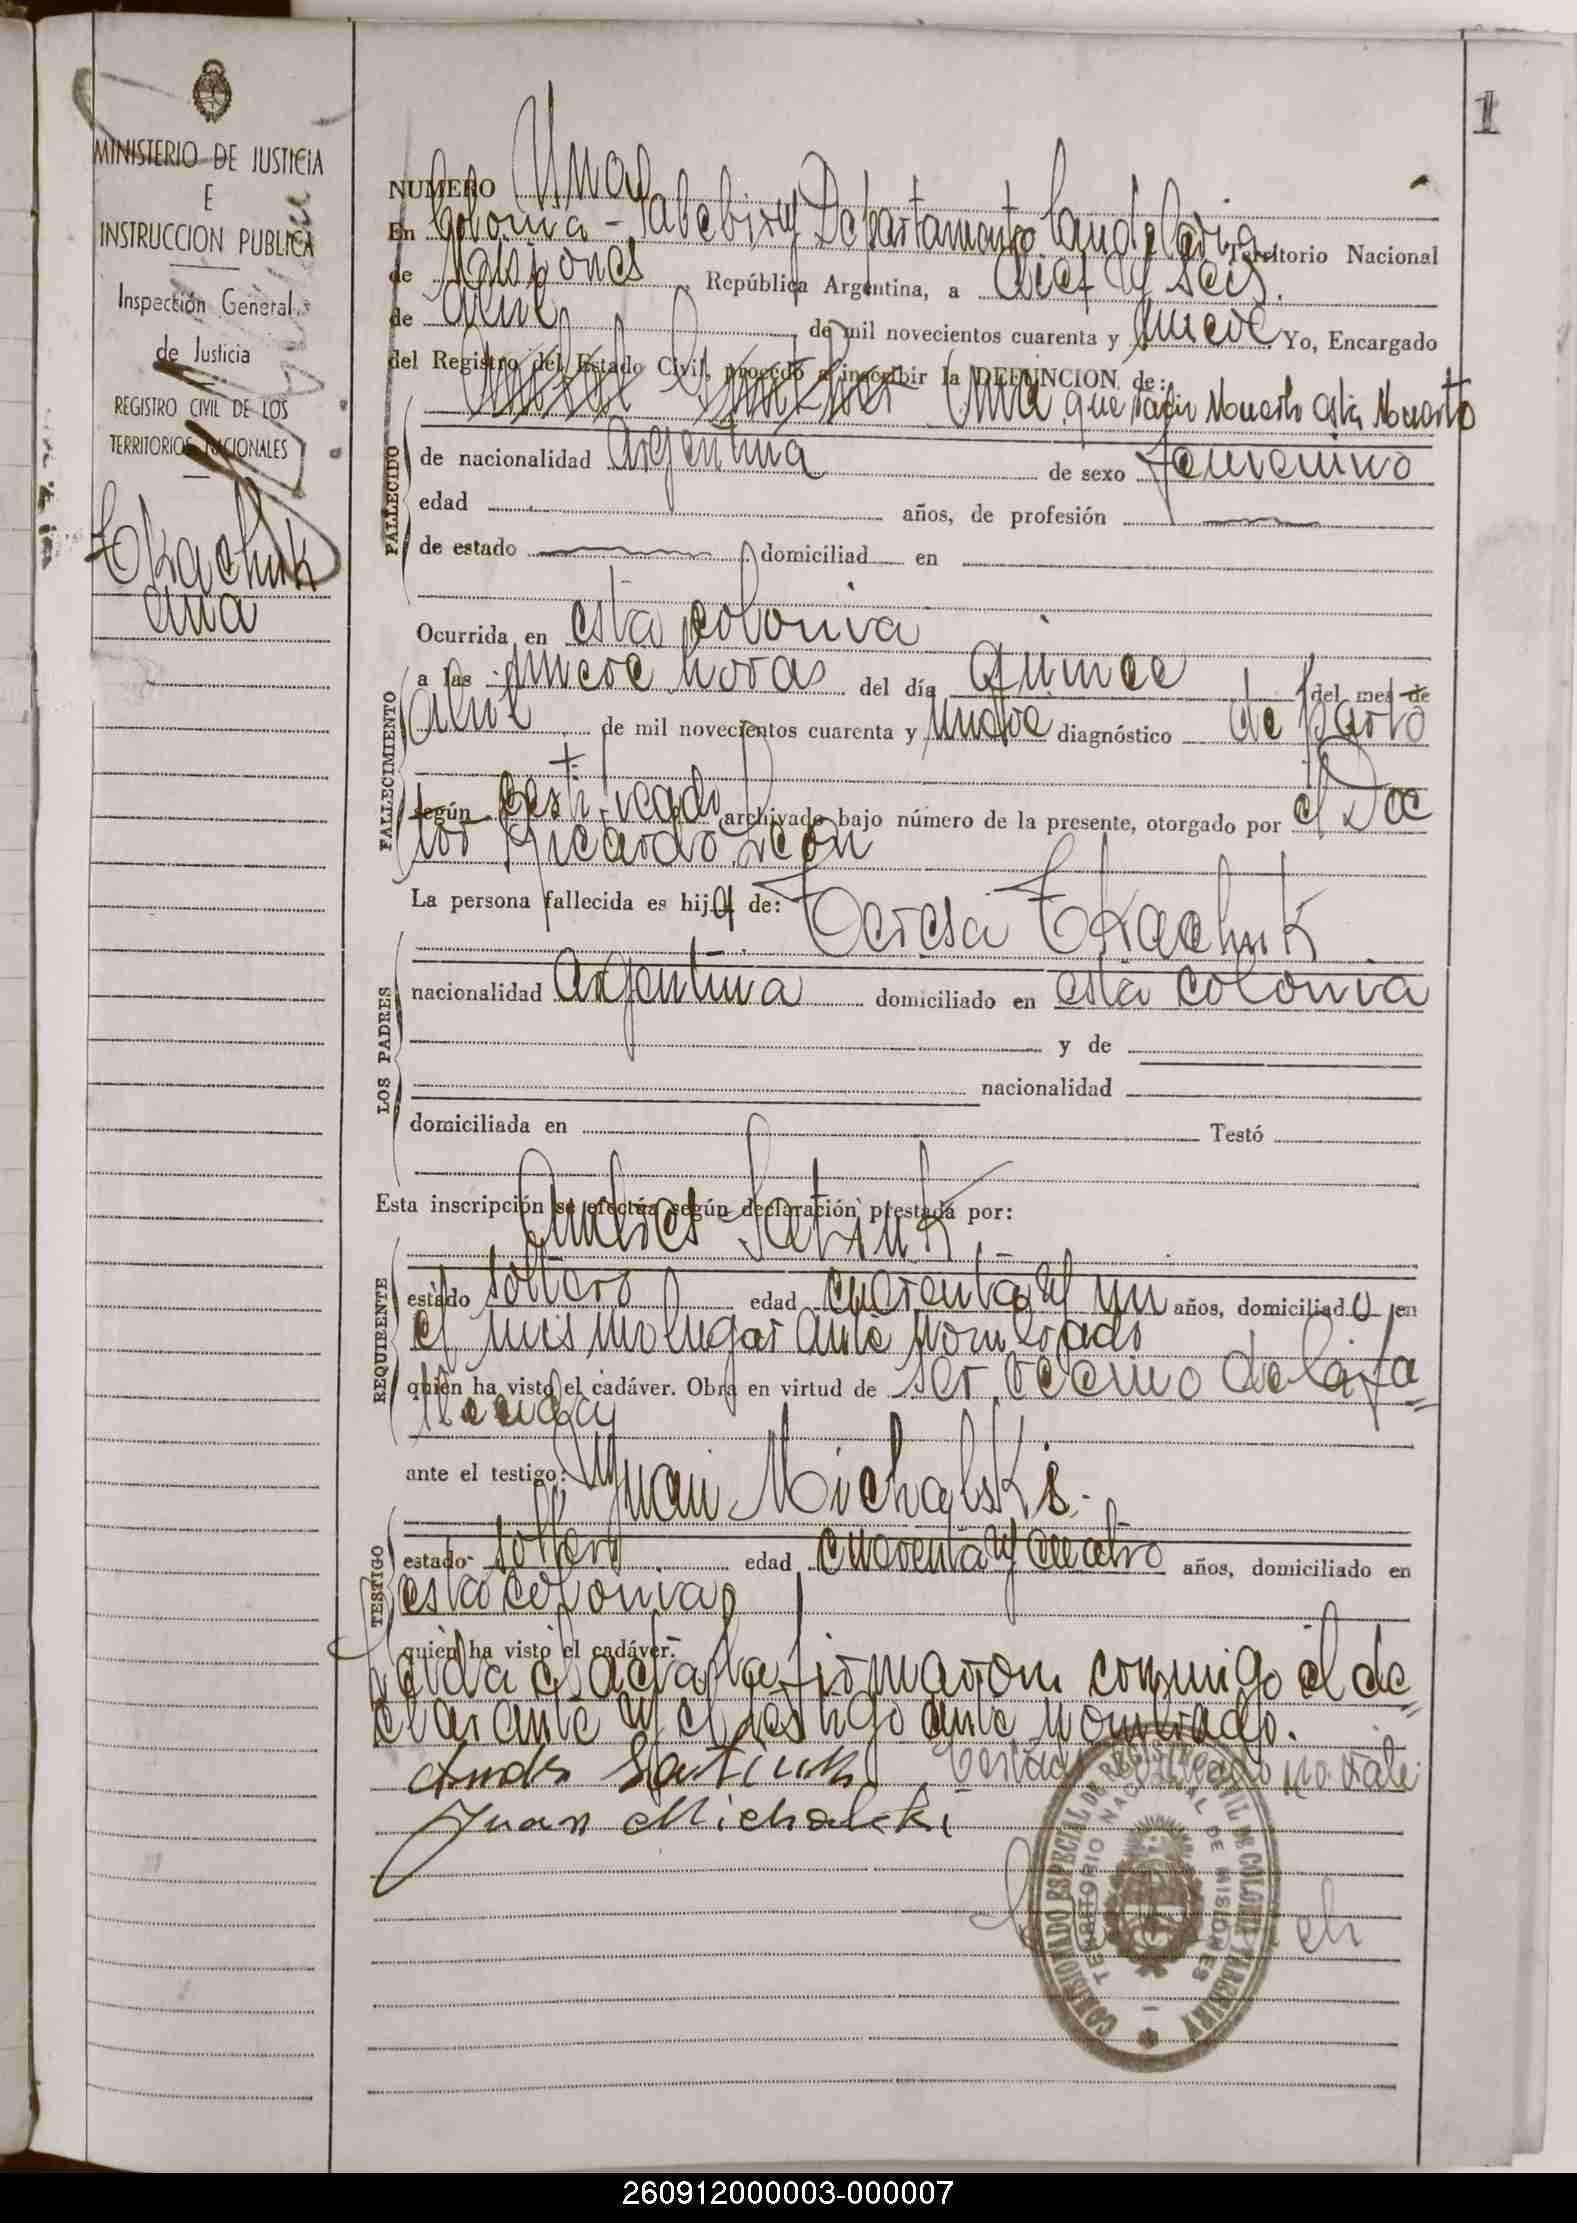 1
MINISTERIO DE JUSTICIA
E
INSTRUCCION PUBLICA
Inspección General
de Justicia
REGISTRO CIVIL DE LOS
TERRITORIOS NACIONALES
Tkachuk
una
NUMERO Una
En Colonia - Yabebiry Departamento Candelaria Territorio Nacional
de Misiones, República Argentina, a diez y seis
de abril de mil novecientos cuarenta y nueve Yo, Encargado
del Registro del Estado Civil, procedo a inscribir la DEFUNCION de:
Una que nacio Muerto
FALLECIDO
de nacionalidad Argentina de sexo femenino
edad años, de profesión
de estado domiciliad en
Ocurrida en esta colonia
FALLECIMIENTO
a las nueve horas del día quince del mes de
abril de mil novecientos cuarenta y nueve diagnóstico de Parto
según certificado archivado bajo número de la presente, otorgado por el Doc
tor Ricardo León
La persona fallecida es hija de: Teresa Tkachuk
LOS PADRES
nacionalidad Argentina domiciliado en esta colonia
y de
nacionalidad
domiciliada en Testó
Esta inscripción se efectúa según declaración prestada por:
Andres Satiuk
REQUIRENTE
estado soltero edad cuarenta y un años, domiciliado en
el mismo lugar ante nombrado
quien ha visto el cadáver. Obra en virtud de ser vecino de la fa=
ante el testigo: Juan Michalski.-
TESTIGO
estado soltero edad cuarenta y cuatro años, domiciliado en
esta colonia
quien ha visto el cadáver.
Leida el acta la firmaron conmigo el de=
clarante y el testigo ante nombrado.
no vale
Andres Satiuk
Juan Michalski
COMISIONADO ESPECIAL DE REGISTRO CIVIL DE COLONIA YABEBIRY
TERRITORIO NACIONAL DE MISIONES
260912000003-000007